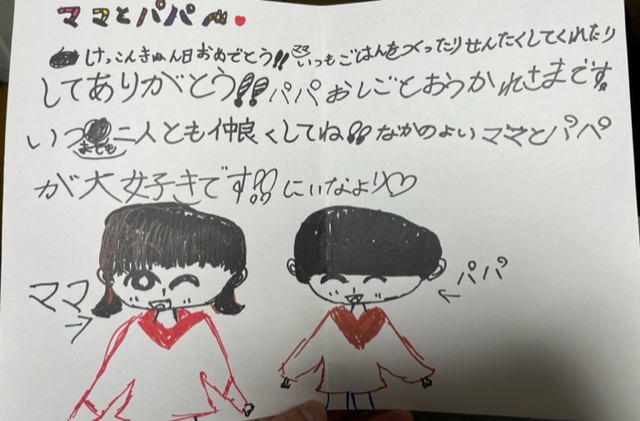 ママとパパへ
けっこんきねん日おめでとう!!ママいつもごはんをつくったりせんたくしてくれたり
してありがとう!!パパおしごとおつかれさまです。
いつまでも二人とも仲良くしてね!!なかのよいママとパパ
が大好きです!!にいなより♡
ママ
パパ